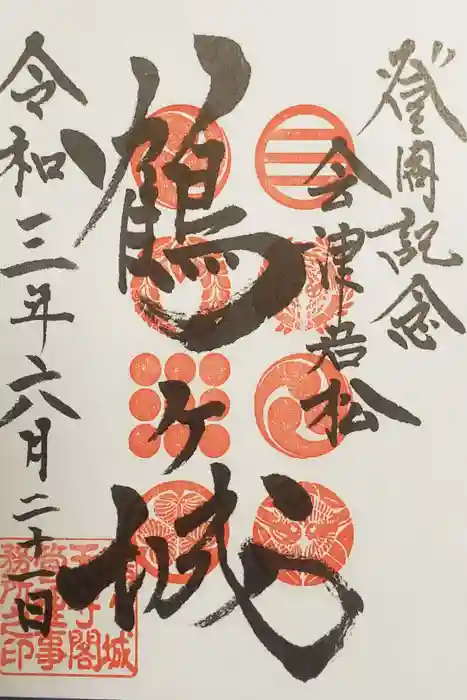 登閣記念
会津若松
鶴ヶ城
令和三年六月二十一日
城
天守閣
管理事
務所之印